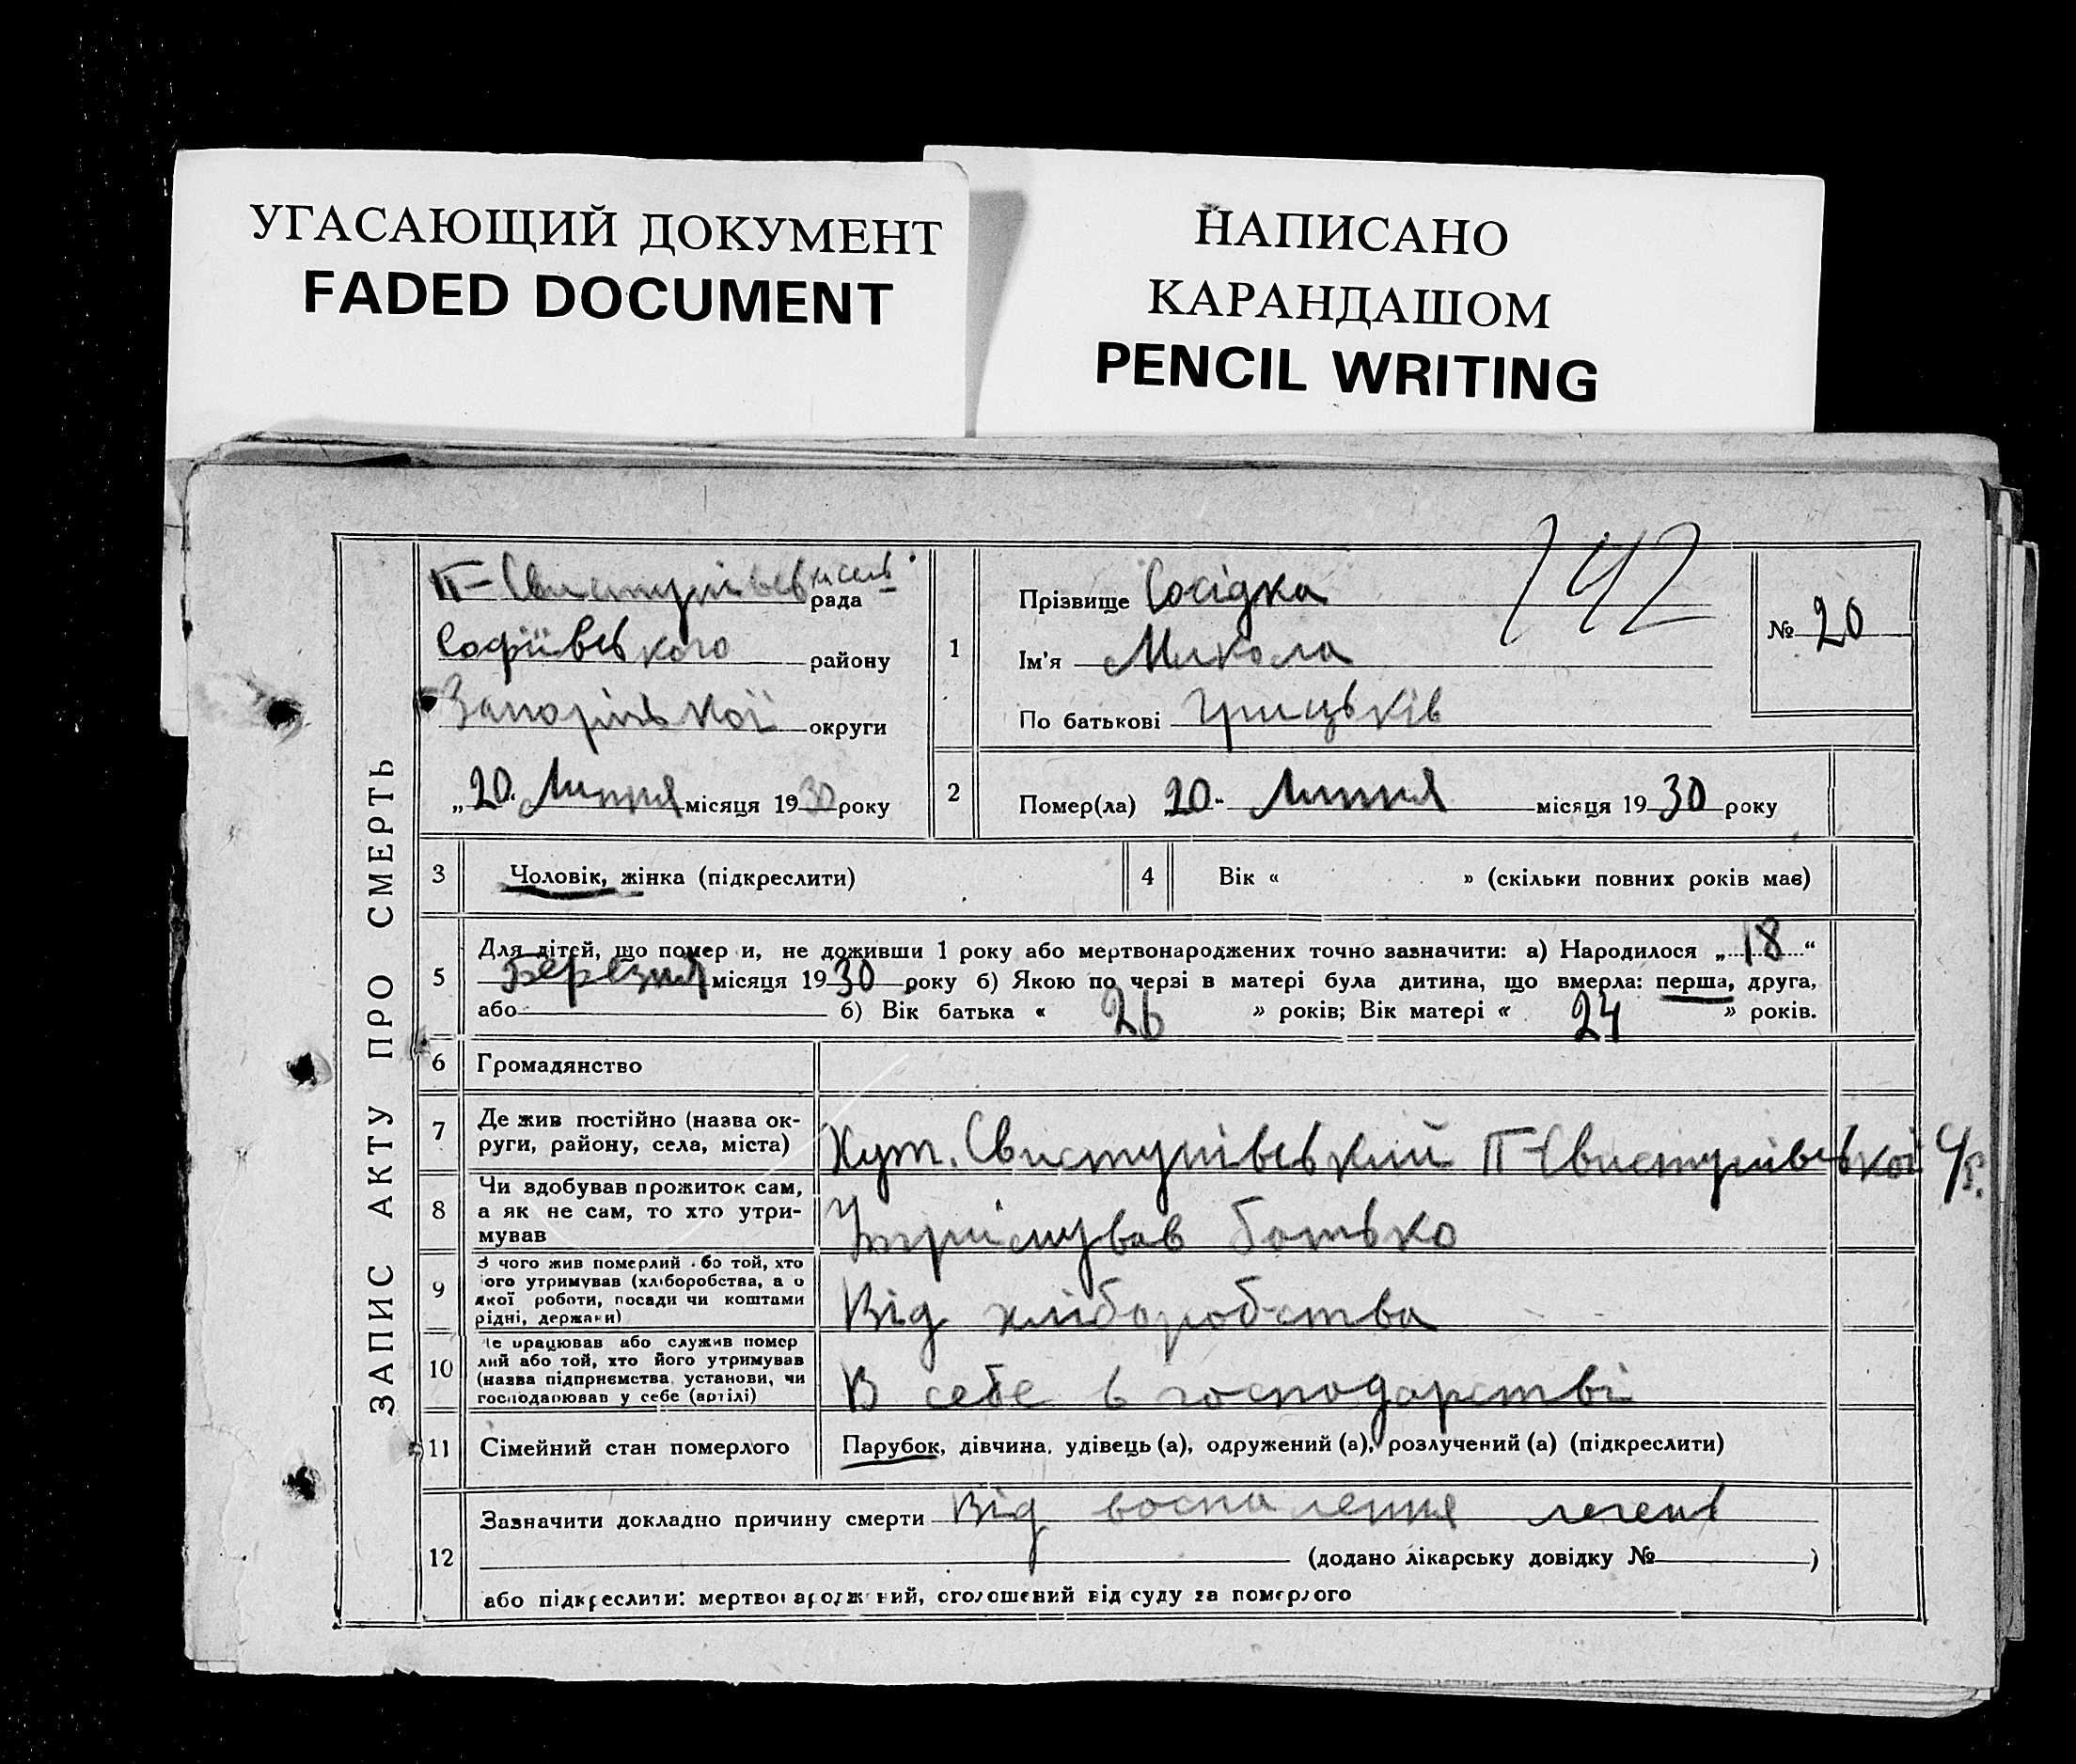 УГАСАЮЩИЙ ДОКУМЕНТ
FADED DOCUMENT
НАПИСАНО
КАРАНДАШОМ
PENCIL WRITING
ЗАПИС АКТУ ПРО СМЕРТЬ
П-Свистунівська сель рада
Софіївського району
Запорізької округи
„20. Липня місяця 1930 року
142
1 Прізвище Сосідка
Ім'я Микола
По батькові Грицьків
№ 20
2 Помер(ла) 20. Липня місяця 1930 року
3 Чоловік, жінка (підкреслити)
4 Вік « » (скільки повних років має)
5 Для дітей, що помер и, не доживши 1 року або мертвонароджених точно зазначити: а) Народилося „18“
Березня місяця 1930 року б) Якою по черзі в матері була дитина, що вмерла: перша, друга,
або б) Вік батька « 26 » років; Вік матері « 24 » років.
6 Громадянство
7 Де жив постійно (назва ок-
руги, району, села, міста)
Хут. Свистунівський П-Свистунівської С/р.
8 Чи здобував прожиток сам,
а як не сам, то хто утри-
мував
Утрімував батько
9 З чого жив померлий бо той, хто
ого утримував (хліборобства, а о
якої роботи, посади чи коштами
рідні, держави)
Від хліборобства
10 е працював або служив помер
лий або той, хто його утримував
(назва підприємства, установи, чи
господарював у себе (артілі)
В себе в господарстві
11 Сімейний стан померлого
Парубок, дівчина, удівець (а), одружений (а), розлучений (а) (підкреслити)
12 Зазначити докладно причину смерти Від воспалення легенів
(додано лікарську довідку № )
або підкреслити: мертвонароджений, оголошений від суду за померлого